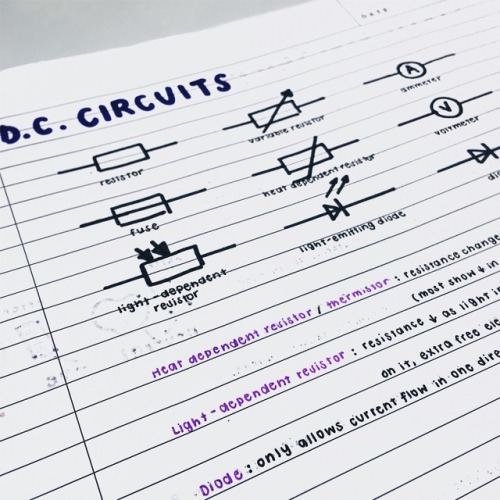 Date
D.C. CIRCUITS
resistor
variable resistor
A
ammeter
fuse
heat dependent resistor
V
voltmeter
light-dependent
resistor
light-emitting diode
Heat dependent resistor / thermistor : resistance change
(most show ↓ in
Light-dependent resistor : resistance ↓ as light in
on it, extra free ele
Diode : only allows current flow in one dire